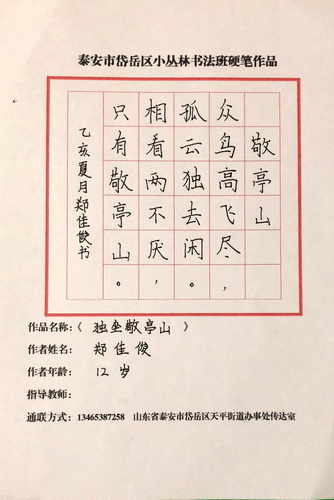 泰安市岱岳区小丛林书法班硬笔作品
敬亭山
众鸟高飞尽，
孤云独去闲。
相看两不厌，
只有敬亭山。
乙亥夏月郑佳俊书
作品名称：《 独坐敬亭山 》
作者姓名： 郑佳俊
作者年龄： 12 岁
指导教师：
通联方式：13465387258 山东省泰安市岱岳区天平街道办事处传达室